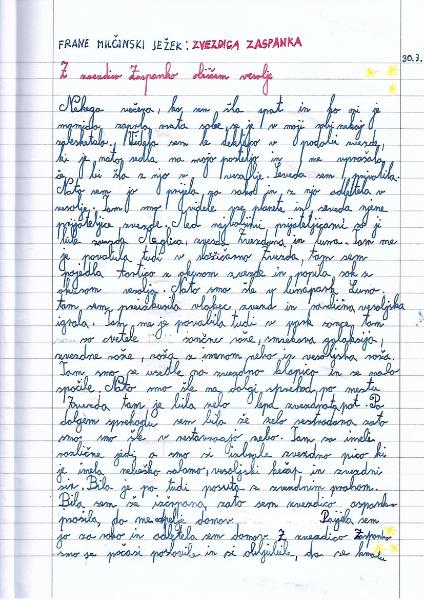 FRANE MILČINSKI JEŽEK: ZVEZDICA ZASPANKA
30.3.
Z zvezdico Zaspanko odličim vesolje
Nekega večera, ko sem šla spat in ko mi je
mamica zaprla vrata sobe se je v moji sobi nekaj
zalesketalo. Videla sem le deklico v podobi zvezde,
ki je nato sedla na mojo posteljo in me vprašala
če bi šla z njo v vesolje. Seveda sem privolila.
Nato sem jo prijela za roko in z njo odletela v
vesolje. Tam smo videle vse planete in seveda njene
prijateljice zvezde. Med najboljšimi prijateljicami so ji
bile zvezda Meglica, zvezda Zvezdana in luna. Tam me
je povabila tudi v slaščičarno Zvezda, tam sem
pojedla tortico z okusom zvezde in popila sok z
okusom vesolja. Nato smo šle v lunapark Luna.
tam sem preizkusila vlakec zvezd in vesoljska
igrala. Tam me je povabila tudi v park sonca, tam
so cvetele sončne rože, smrekova galaksija,
zvezdne rože, roža z imenom nebo in vesoljska roža.
Tam smo se usedle na zvezdno klopico in se malo
spočile. Nato smo šle na dolgi sprehod po mestu
Zvezda tam je bila zelo lepa zvezdnata pot. Po
dolgem sprehodu sem bila že zelo sestradana zato
smo šle v restavracijo nebo. Tam so imele
različne jedi a smo si izbrale zvezdno pico ki
je imela nebeško salamo, vesoljski kečap in zvezdni
sir. Bila je pa tudi posuta z zvezdnim prahom.
Bila sem že izčrpana, zato sem zvezdico zaspanko
prosila, da me odpelje domov. Prijela sem
jo za roko in odletela sem domov. Z zvezdico Zaspanko
smo se počasi poslovile in si obljubile, da se kmalu